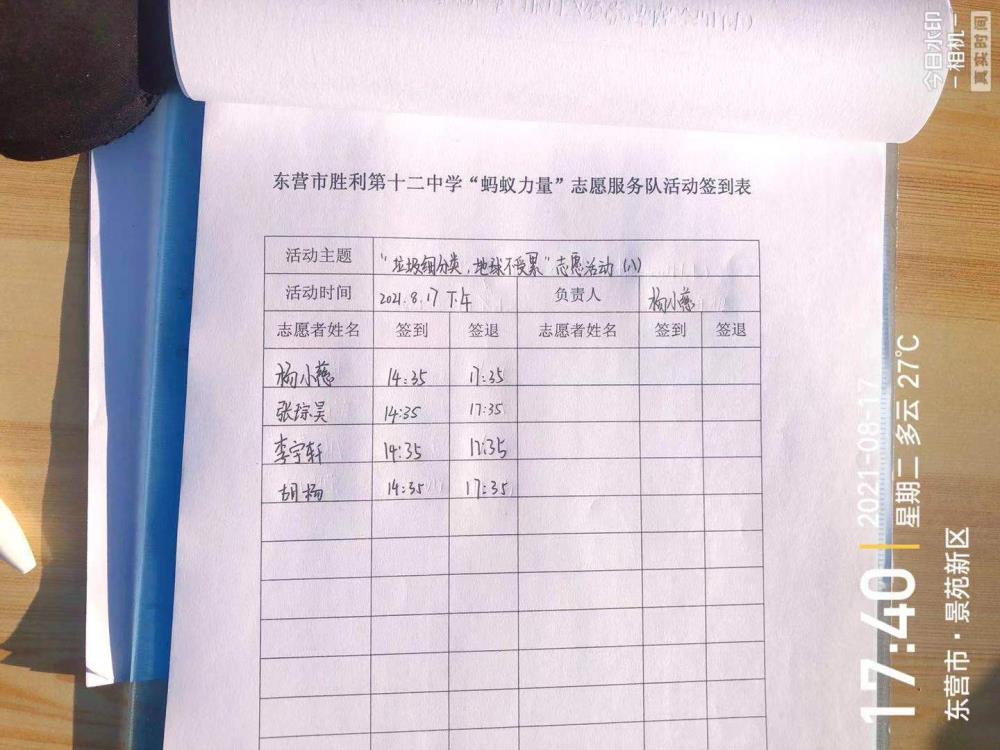 东营市胜利第十二中学“蚂蚁力量”志愿服务队活动签到表
活动主题 “垃圾细分类，地球不受累”志愿活动（八）
活动时间 2021.8.17 下午 负责人 杨小慈
志愿者姓名 签到 签退 志愿者姓名 签到 签退
杨小慈 14:35 17:35
张琮昊 14:35 17:35
李宇轩 14:35 17:35
胡杨 14:35 17:35
今日水印
-相机-
真实时间
17:40
2021-08-17
星期二 多云 27℃
东营市·景苑新区